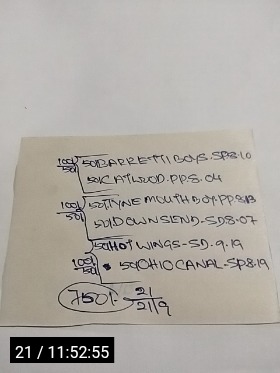 100/50 50/BARRETTIBOYS.SP8.10
50/CATWOOD.PP.8.04
100/50 50/TYNEMOUTHBOY.PP.8.13
50/DOWNSEND-SD8-07
50/HOT WINGS-SD.9.19
100/50 50/OHIOCANAL-SP8.19
750/- 21/2119
21 / 11:52:55